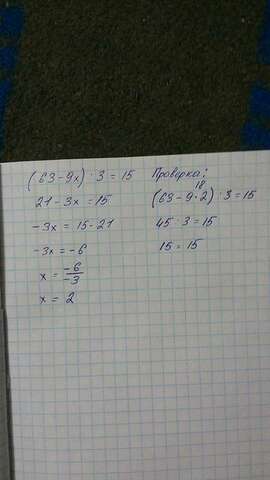 (63-9x) : 3 = 15
21-3x = 15
-3x = 15-21
-3x = -6
x = -6/-3
x = 2
Проверка:
18
(63-9·2) : 3 = 15
45 : 3 = 15
15 = 15